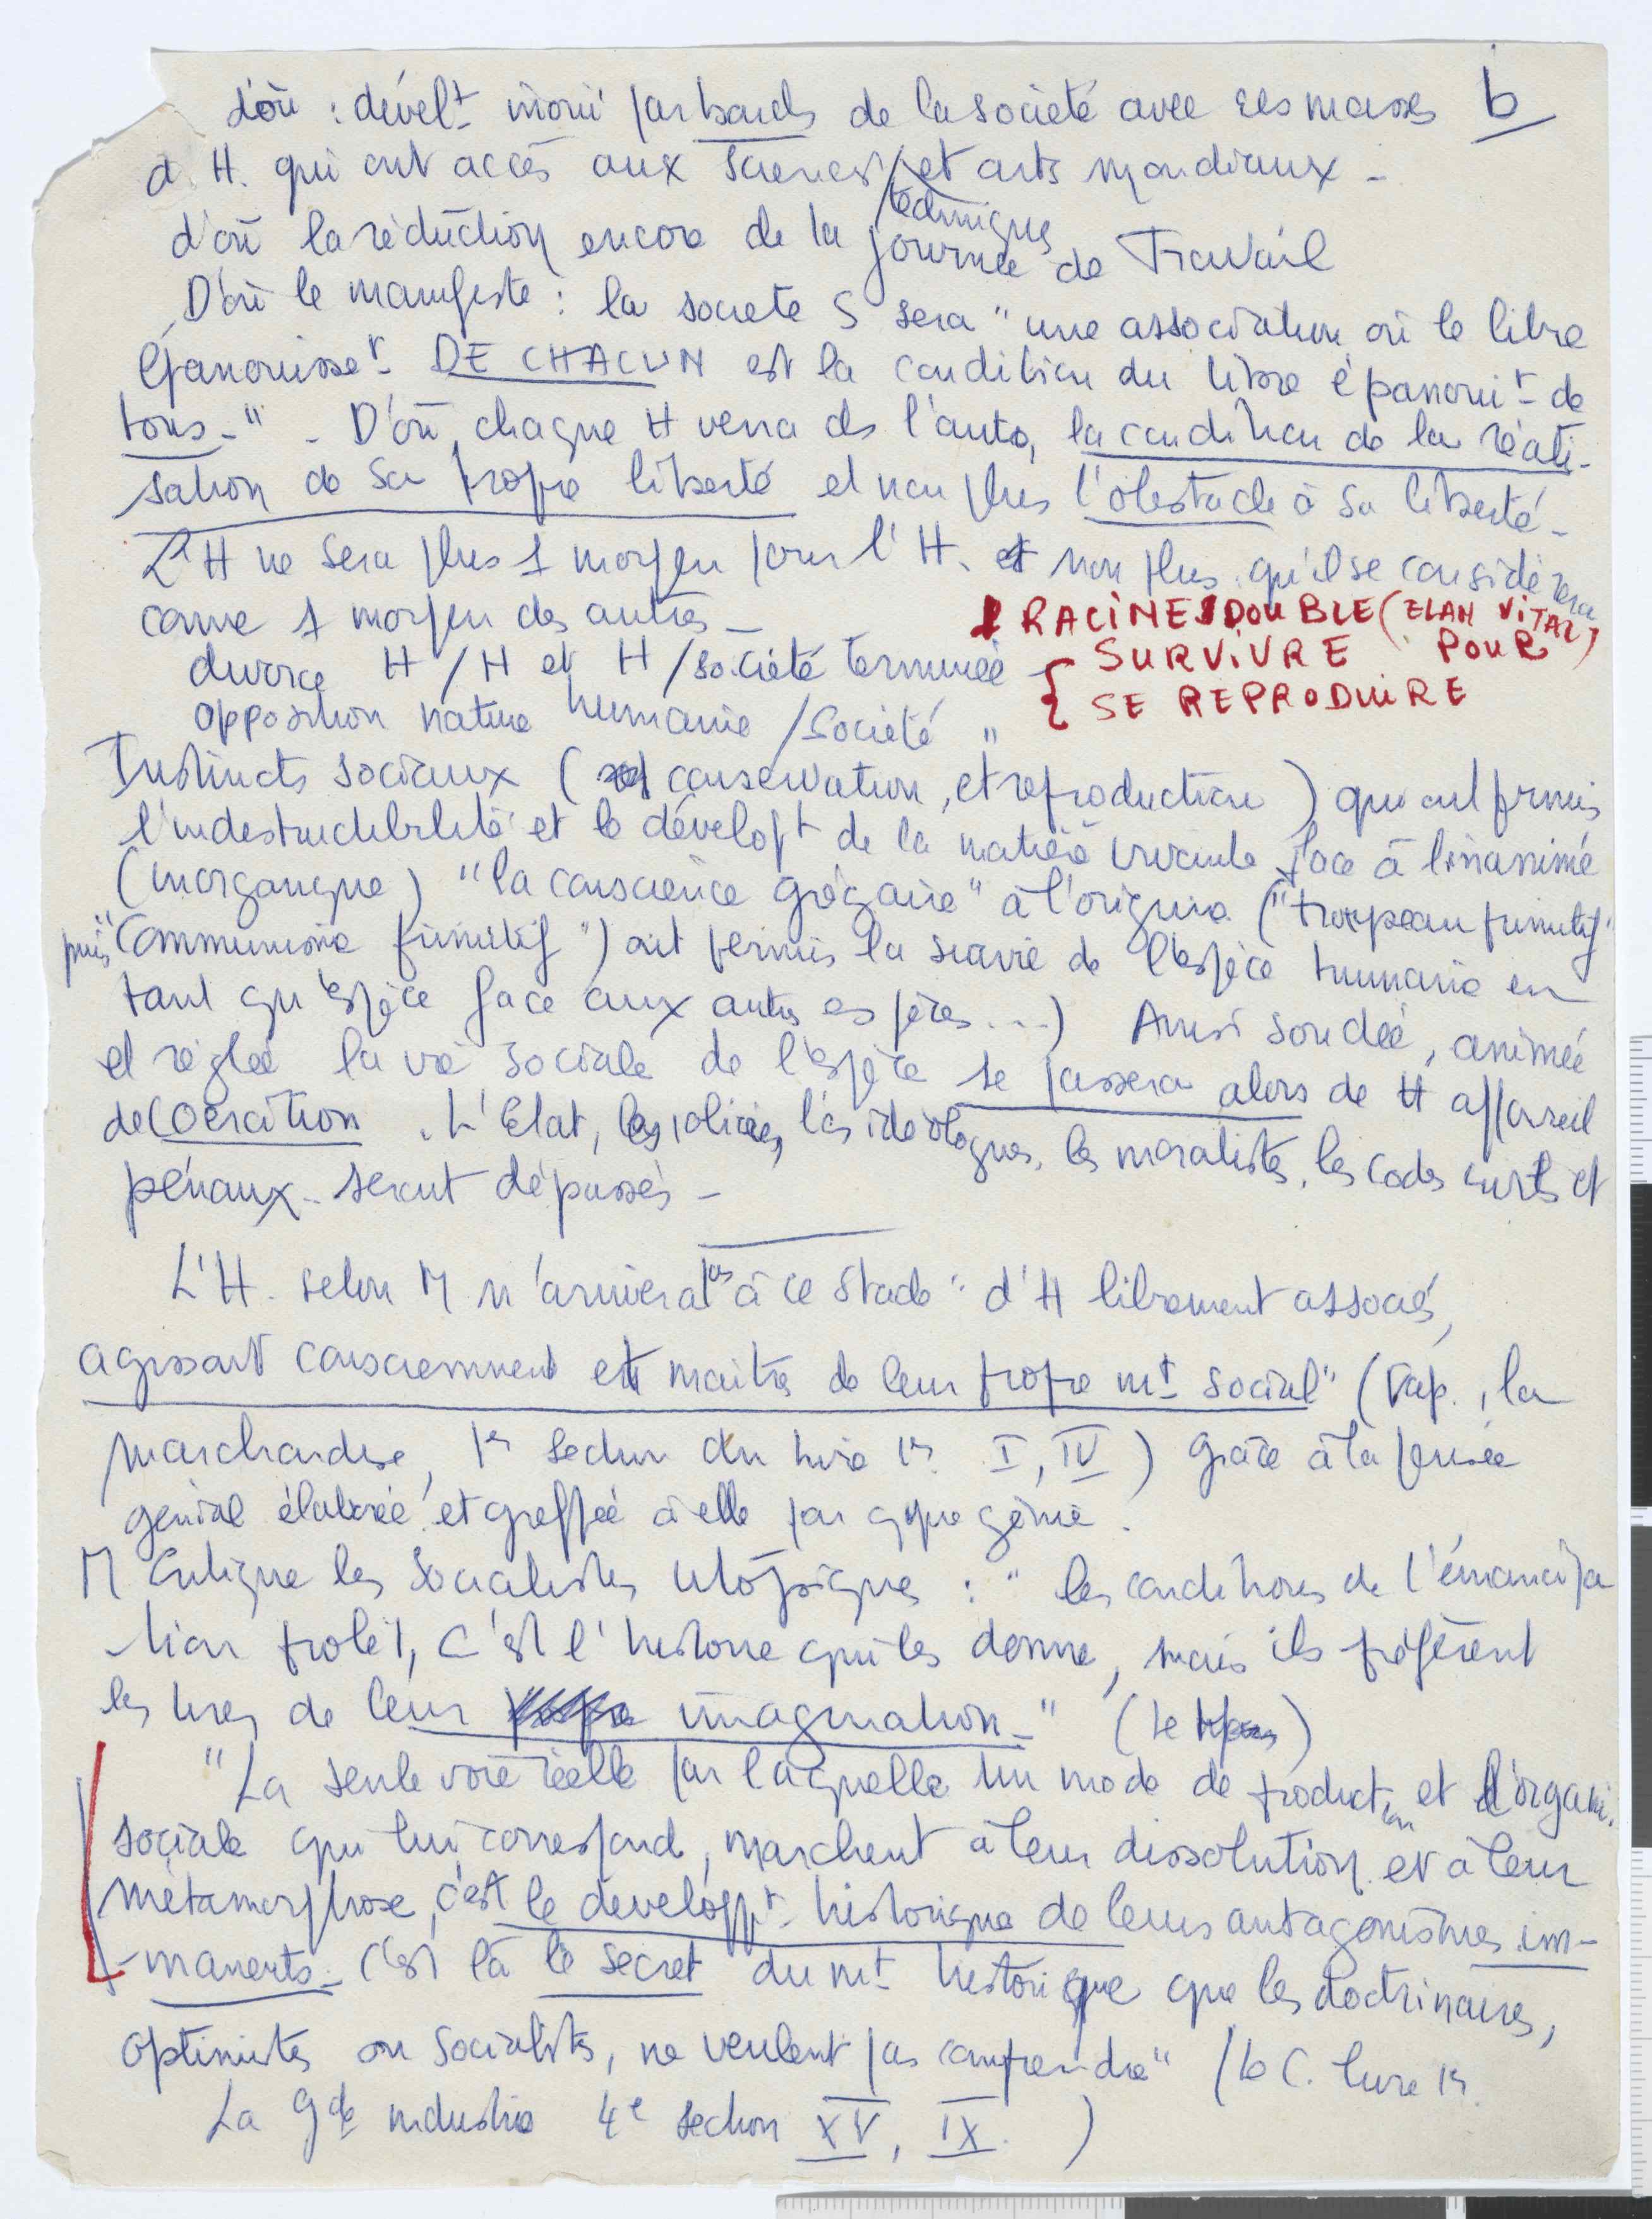 b
d'où : dévelt inouï par bonds de la société avec ses masses
d. H. qui ont accès aux sciences et arts mondiaux -
techniques
d'où la réduction encore de la journée de Travail
D'où le manifeste : la societe S sera "une association où le libre
épanouisset DE CHACUN est la condition du libre épanouit de
tous-" - D'où, chaque H verra ds l'autre, la condition de la réali-
sation de sa propre liberté et non plus l'obstacle à sa liberté -
L'H ne sera plus 1 moyen pour l'H. et non plus qu'il se considérera
comme 1 moyen des autres -
RACINE DOUBLE (ELAN VITAL)
SURVIVRE POUR
SE REPRODUIRE
divorce H / H et H / société terminée
opposition nature humaine / Société "
Instincts sociaux ( conservation, et reproduction ) qui ont permis
l'indestructibilité et le développt de la matière vivante face à l'inanimé
(inorganique) "la conscience grégaire" à l'origine ("troupeau primitif"
puis "Communisme primitif") ont permis la survie de l'espèce humaine en
tant qu'espèce face aux autres espèces ...) Ainsi soudée, animée
et réglée la vie sociale de l'espèce se passera alors de tt appareil
de Coercition. L'Etat, les polices, les idéologues, les moralistes, les codes civils et
pénaux.. seront dépassés -
L'H. selon M n'arrivera pas à ce stade "d'H librement associés,
agissant consciemment et maitres de leur propre mt social" (Cap., la
marchandise, 1er section du livre 1er I, IV) grâce à la pensée
génial élaborée et greffée à elle par qque génie.
M Critique les Socialistes utopiques : "les conditions de l'émancipa
tion prolét, c'est l'histoire qui les donne, mais ils préfèrent
les tirer de leur imagination-" (le
"La seule voie réelle par laquelle un mode de production et l'organi.
sociale qui lui correspond, marchent à leur dissolution et à leur
métamorphose, c'est le développt historique de leurs antagonismes im-
-manents- C'est là le secret du mt historique que les doctrinaires,
optimistes ou socialistes, ne veulent pas comprendre" (le C. livre 1er.
La gde industrie 4e section XV, IX. )